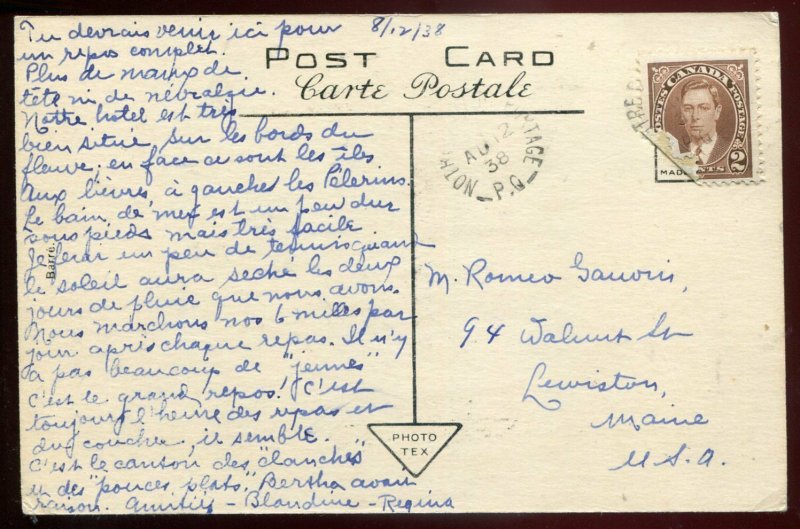 Tu devrais venir ici pour
un repos complet.
Plus de maux de
tête ni de névralgie.
Notre hotel est très
bien situé, sur les bords du
fleuve; en face ce sont les îles
aux lièvres, à gauche les Pélerins.
Le bain de mer est un peu dur
sous pieds mais très facile
Je ferai un peu de tennis quand
le soleil aura seché les deux
jours de pluie que nous avons.
Nous marchons nos 6 milles par
jour après chaque repas. Il n'y
a pas beaucoup de "jeunes"
c'est le grand repos! C'est
toujours l'heure des repas et
du coucher, il semble.
C'est le canton des
et des "pouces plats." Bertha avait
raison. Amitiés - Blandine - Regina
8/12/38
POST CARD
Carte Postale
Barré.
PHOTO
TEX
AU 12
38
P.Q.
POSTES CANADA POSTAGE
2
CENTS
MADE
M. Romeo Gauvin,
94 Walnut St
Lewiston,
Maine
U.S.A.